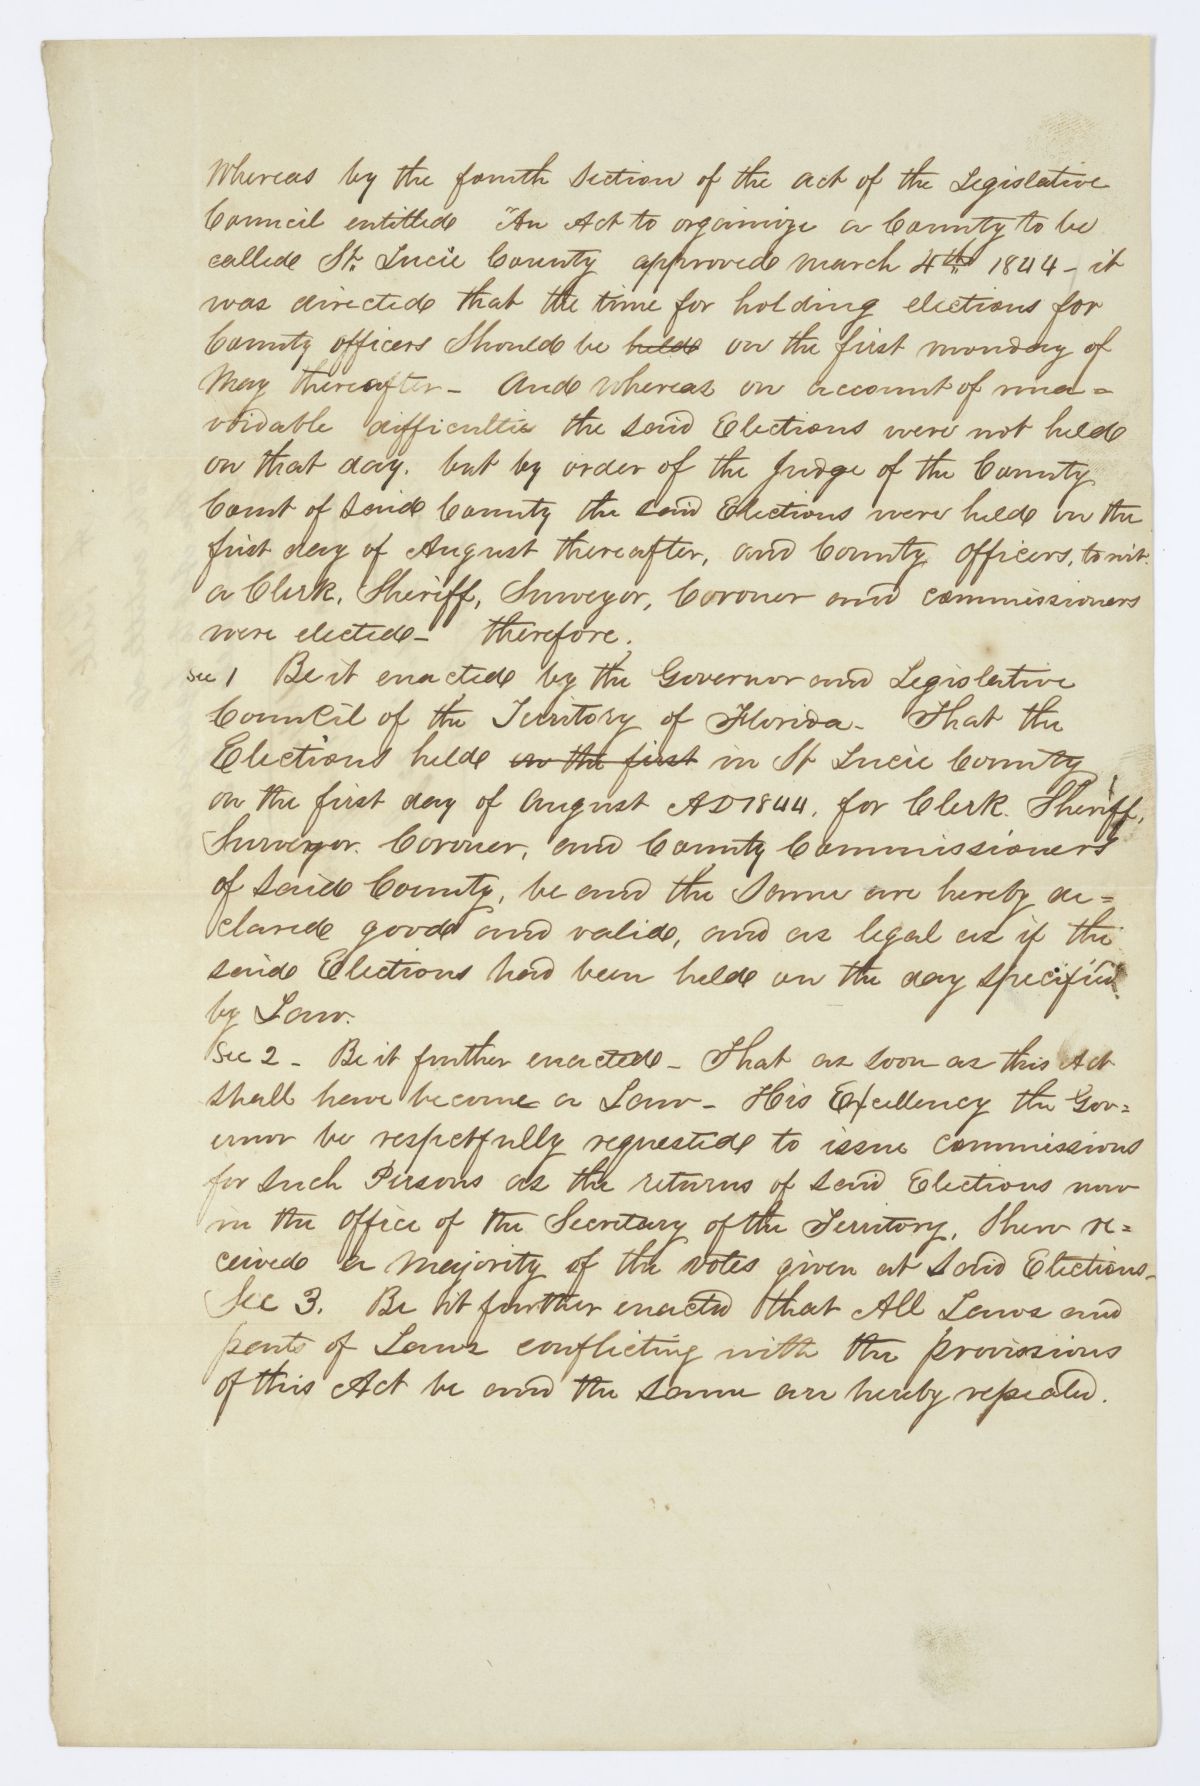 Whereas by the fourth Section of the act of the Legislative
Council entitled "An Act to organize a County to be
called St. Lucie County approved March 4th 1844 - it
was directed that the time for holding elections for
County officers Should be held on the first monday of
May thereafter - And Whereas on account of una=
voidable difficultis the said Elections were not held
on that day. but by order of the Judge of the County
Court of said County the said Elections were held on the
first day of August thereafter, and County officers, to wit.
a Clerk, Sheriff, Surveyor, Coroner and commissioners
were elected - therefore,
Sec 1 Be it enacted by the Governor and Legislative
Council of the Territory of Florida - That the
Elections held on the first in St Lucie County
on the first day of August AD 1844, for Clerk. Sheriff,
Surveyor. Coroner, and County Commissioners
of said County, be and the same are hereby de=
clared good and valid, and as legal as if the
said Elections had been held on the day specified
by Law.
Sec 2 - Be it further enacted - That as soon as this Act
shall have become a Law - His Excellency the Gov=
ernor be respectfully requested to issue commissions
for such Persons as the returns of said Elections now
in the office of the Secretary of the Territory, Shew re=
ceived a Majority of the votes given at Said Elections -
Sec 3. Be it further enacted that All Laws and
parts of Laws conflicting with the provissions
of this Act be and the same are hereby repealed.